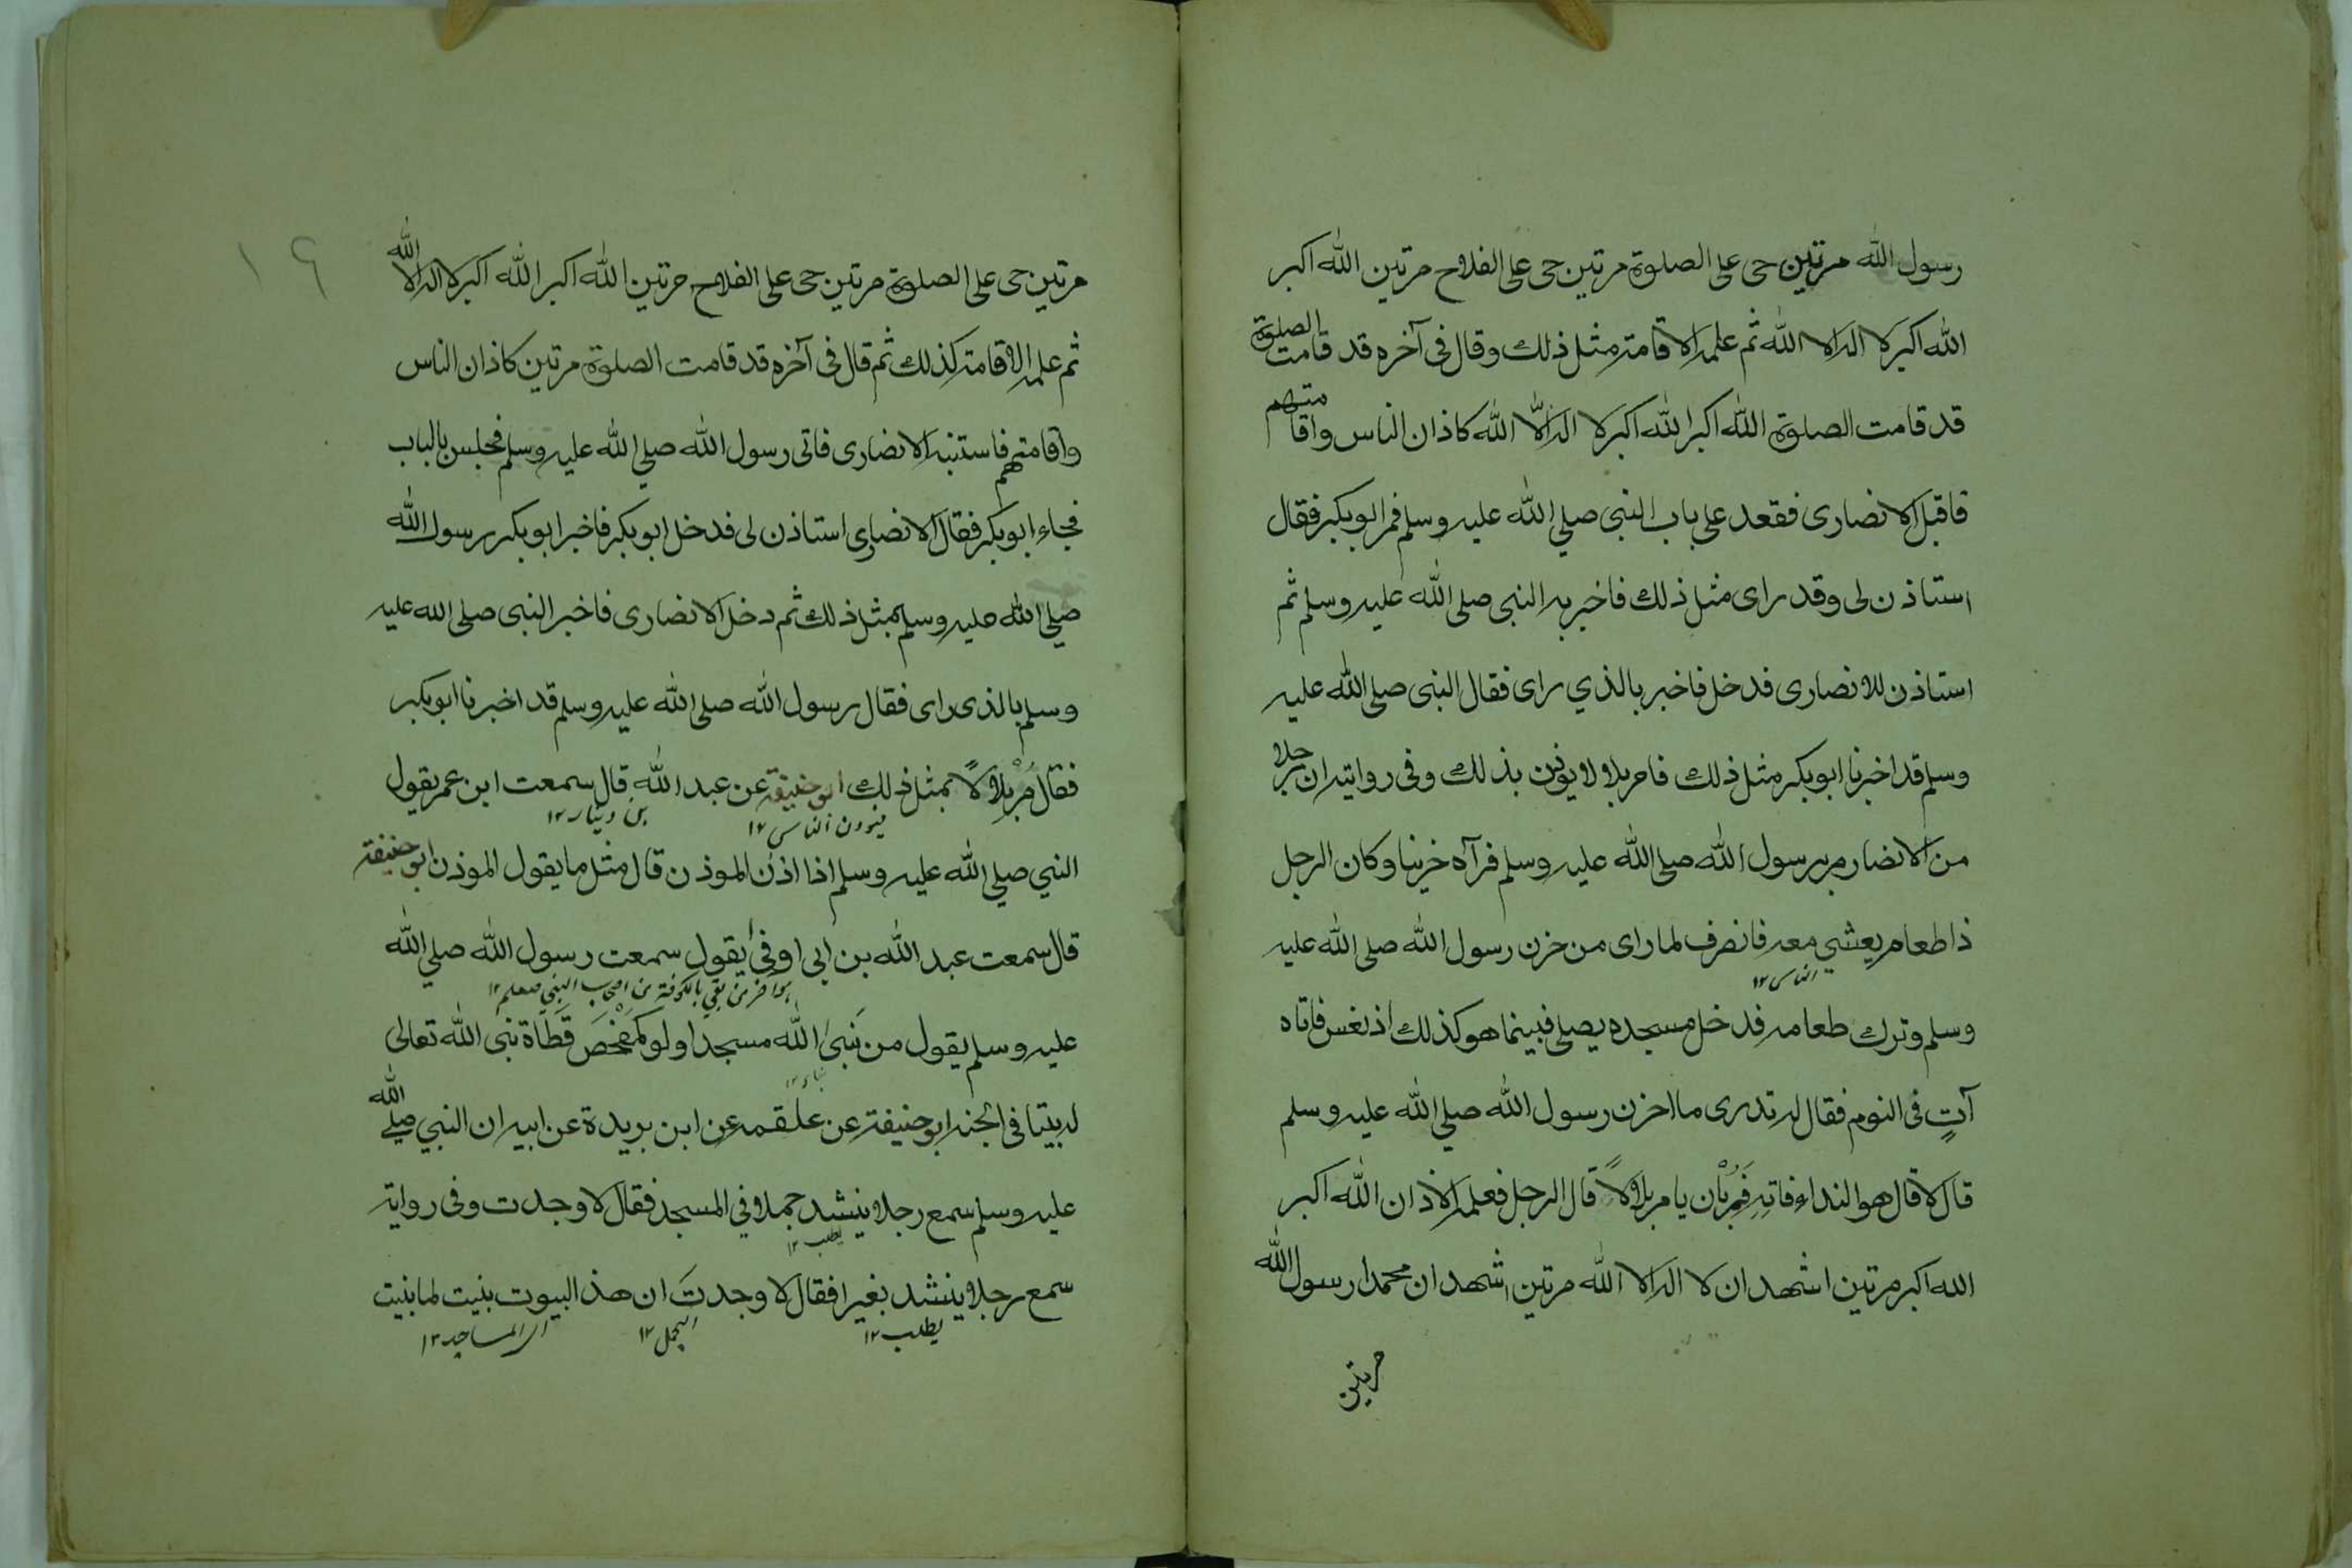 رسول الله مرتين حى على الصلوة مرتين حى على الفلاح مرتين الله اكبر
الله اكبر لا اله الا الله ثم علمه الاقامة مثل ذلك وقال فى آخره قد قامت الصلوة
قد قامت الصلوة الله اكبر الله اكبر لا اله الا الله كاذان الناس واقامتهم
فاقبل الانصارى فقعد على باب النبى صلى الله عليه وسلم فمر ابو بكر فقال
استاذن لى وقد راى مثل ذلك فاخبر به النبى صلى الله عليه وسلم ثم
استاذن للانصارى فدخل فاخبر بالذي راى فقال النبى صلى الله عليه
وسلم قد اخبرنا ابو بكر مثل ذلك فامر بلالا يوذن بذلك وفى رواية ان رجلا
من الانصار مر برسول الله صلى الله عليه وسلم فرآه حزينا وكان الرجل
ذا طعام يعشي معه فانصرف لما راى من حزن رسول الله صلى الله عليه
الناس ١٢
وسلم وترك طعامه فدخل مسجده يصلى فبينما هو كذلك اذ نعس فاتاه
آتٍ فى النوم فقال له تدرى ما احزن رسول الله صلي الله عليه وسلم
قال لا قال هو النداء فاتِهِ فَمُرْ بان يامر بلالاً قال الرجل فعلمه الاذان الله اكبر
الله اكبر مرتين اشهد ان لا اله الا الله مرتين اشهد ان محمدا رسول الله
مرتين
١٩
مرتين حى على الصلوة مرتين حى على الفلاح مرتين الله اكبر الله اكبر لا اله الا الله
ثم علمه الاقامة كذلك ثم قال فى آخره قد قامت الصلوة مرتين كاذان الناس
واقامتهم فاستنبه الانصارى فاتى رسول الله صلي الله عليه وسلم فجلس بالباب
فجاء ابو بكر فقال الانصارى استاذن لى فدخل ابو بكر فاخبر ابو بكر رسول الله
صلي الله عليه وسلم بمثل ذلك ثم دخل الانصارى فاخبر النبى صلى الله عليه
وسلم بالذى راى فقال رسول الله صلى الله عليه وسلم قد اخبرنا ابو بكر
فقال مُرْ بلالاً بمثل ذلك ابو حنيفة عن عبد الله قال سمعت ابن عمر يقول
بن دينار ١٢
النبي صلي الله عليه وسلم اذا اذن الموذن قال مثل ما يقول الموذن ابو حنيفة
قال سمعت عبد الله بن ابى اوفى يقول سمعت رسول الله صلي الله
عليه وسلم يقول من بَنىٰ لله مسجدا ولو كمَفْحَصَ قَطَاة بنى الله تعالى
له بيتا فى الجنة ابو حنيفة عن علقمه عن ابن بريدة عن ابيه ان النبي صلي الله
عليه وسلم سمع رجلا ينشد جملا في المسجد فقال لا وجدت وفى رواية
يطلب ١٢
سمع رجلا ينشد بعيرا فقال لا وجدتَ ان هذ البيوت بنيت لما بنيت
يطلب ١٢ الجمل ١٢ المساجد ١٢